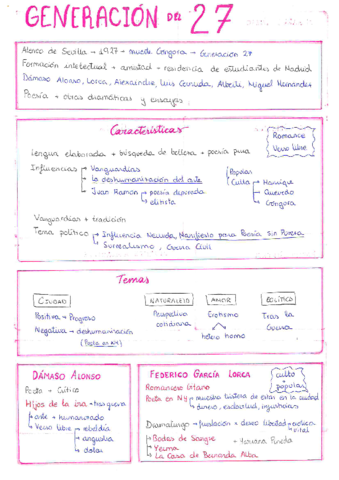 GENERACIÓN DEL 27
Ateneo de Sevilla → 1927 → muerte Góngora → Generación 27
Formación intelectual + amistad → residencia de estudiantes de Madrid
Dámaso Alonso, Lorca, Aleixandre, Luis Cernuda, Alberti, Miguel Hernández
Poesía + obras dramáticas y ensayos
Características
Romance
Verso libre
Lengua elaborada → búsqueda de belleza + poesía pura
Influencias → Vanguardias
→ la deshumanización del arte
→ Juan Ramón → poesía depurada
→ elitista
Popular
Culta → Manrique
Quevedo
Góngora
Vanguardias + tradición
Tema político → Influencia Neruda, Manifiesto para Poesía Sin Pureza
→ Surrealismo, Guerra Civil
Temas
CIUDAD
NATURALEZA
AMOR
POLÍTICO
Positiva → Progreso
Negativa → deshumanización
(Poeta en NY)
cotidiana
Erotismo
hetero homo
Tras la
Guerra
DÁMASO ALONSO
Poeta + Crítico
Hijos de la ira → posguerra
→ arte + humanizado
→ Verso libre → rebeldía
→ angustia
→ dolor
FEDERICO GARCÍA LORCA
culto
+
popular
Romancero Gitano
Poeta en NY → muestra tristeza de estar en la ciudad
→ dinero, esclavitud, injusticias
Dramaturgo → frustración + deseo libertad → política
→ vital
→ Bodas de Sangre
→ Mariana Pineda
→ Yerma
→ La Casa de Bernarda Alba